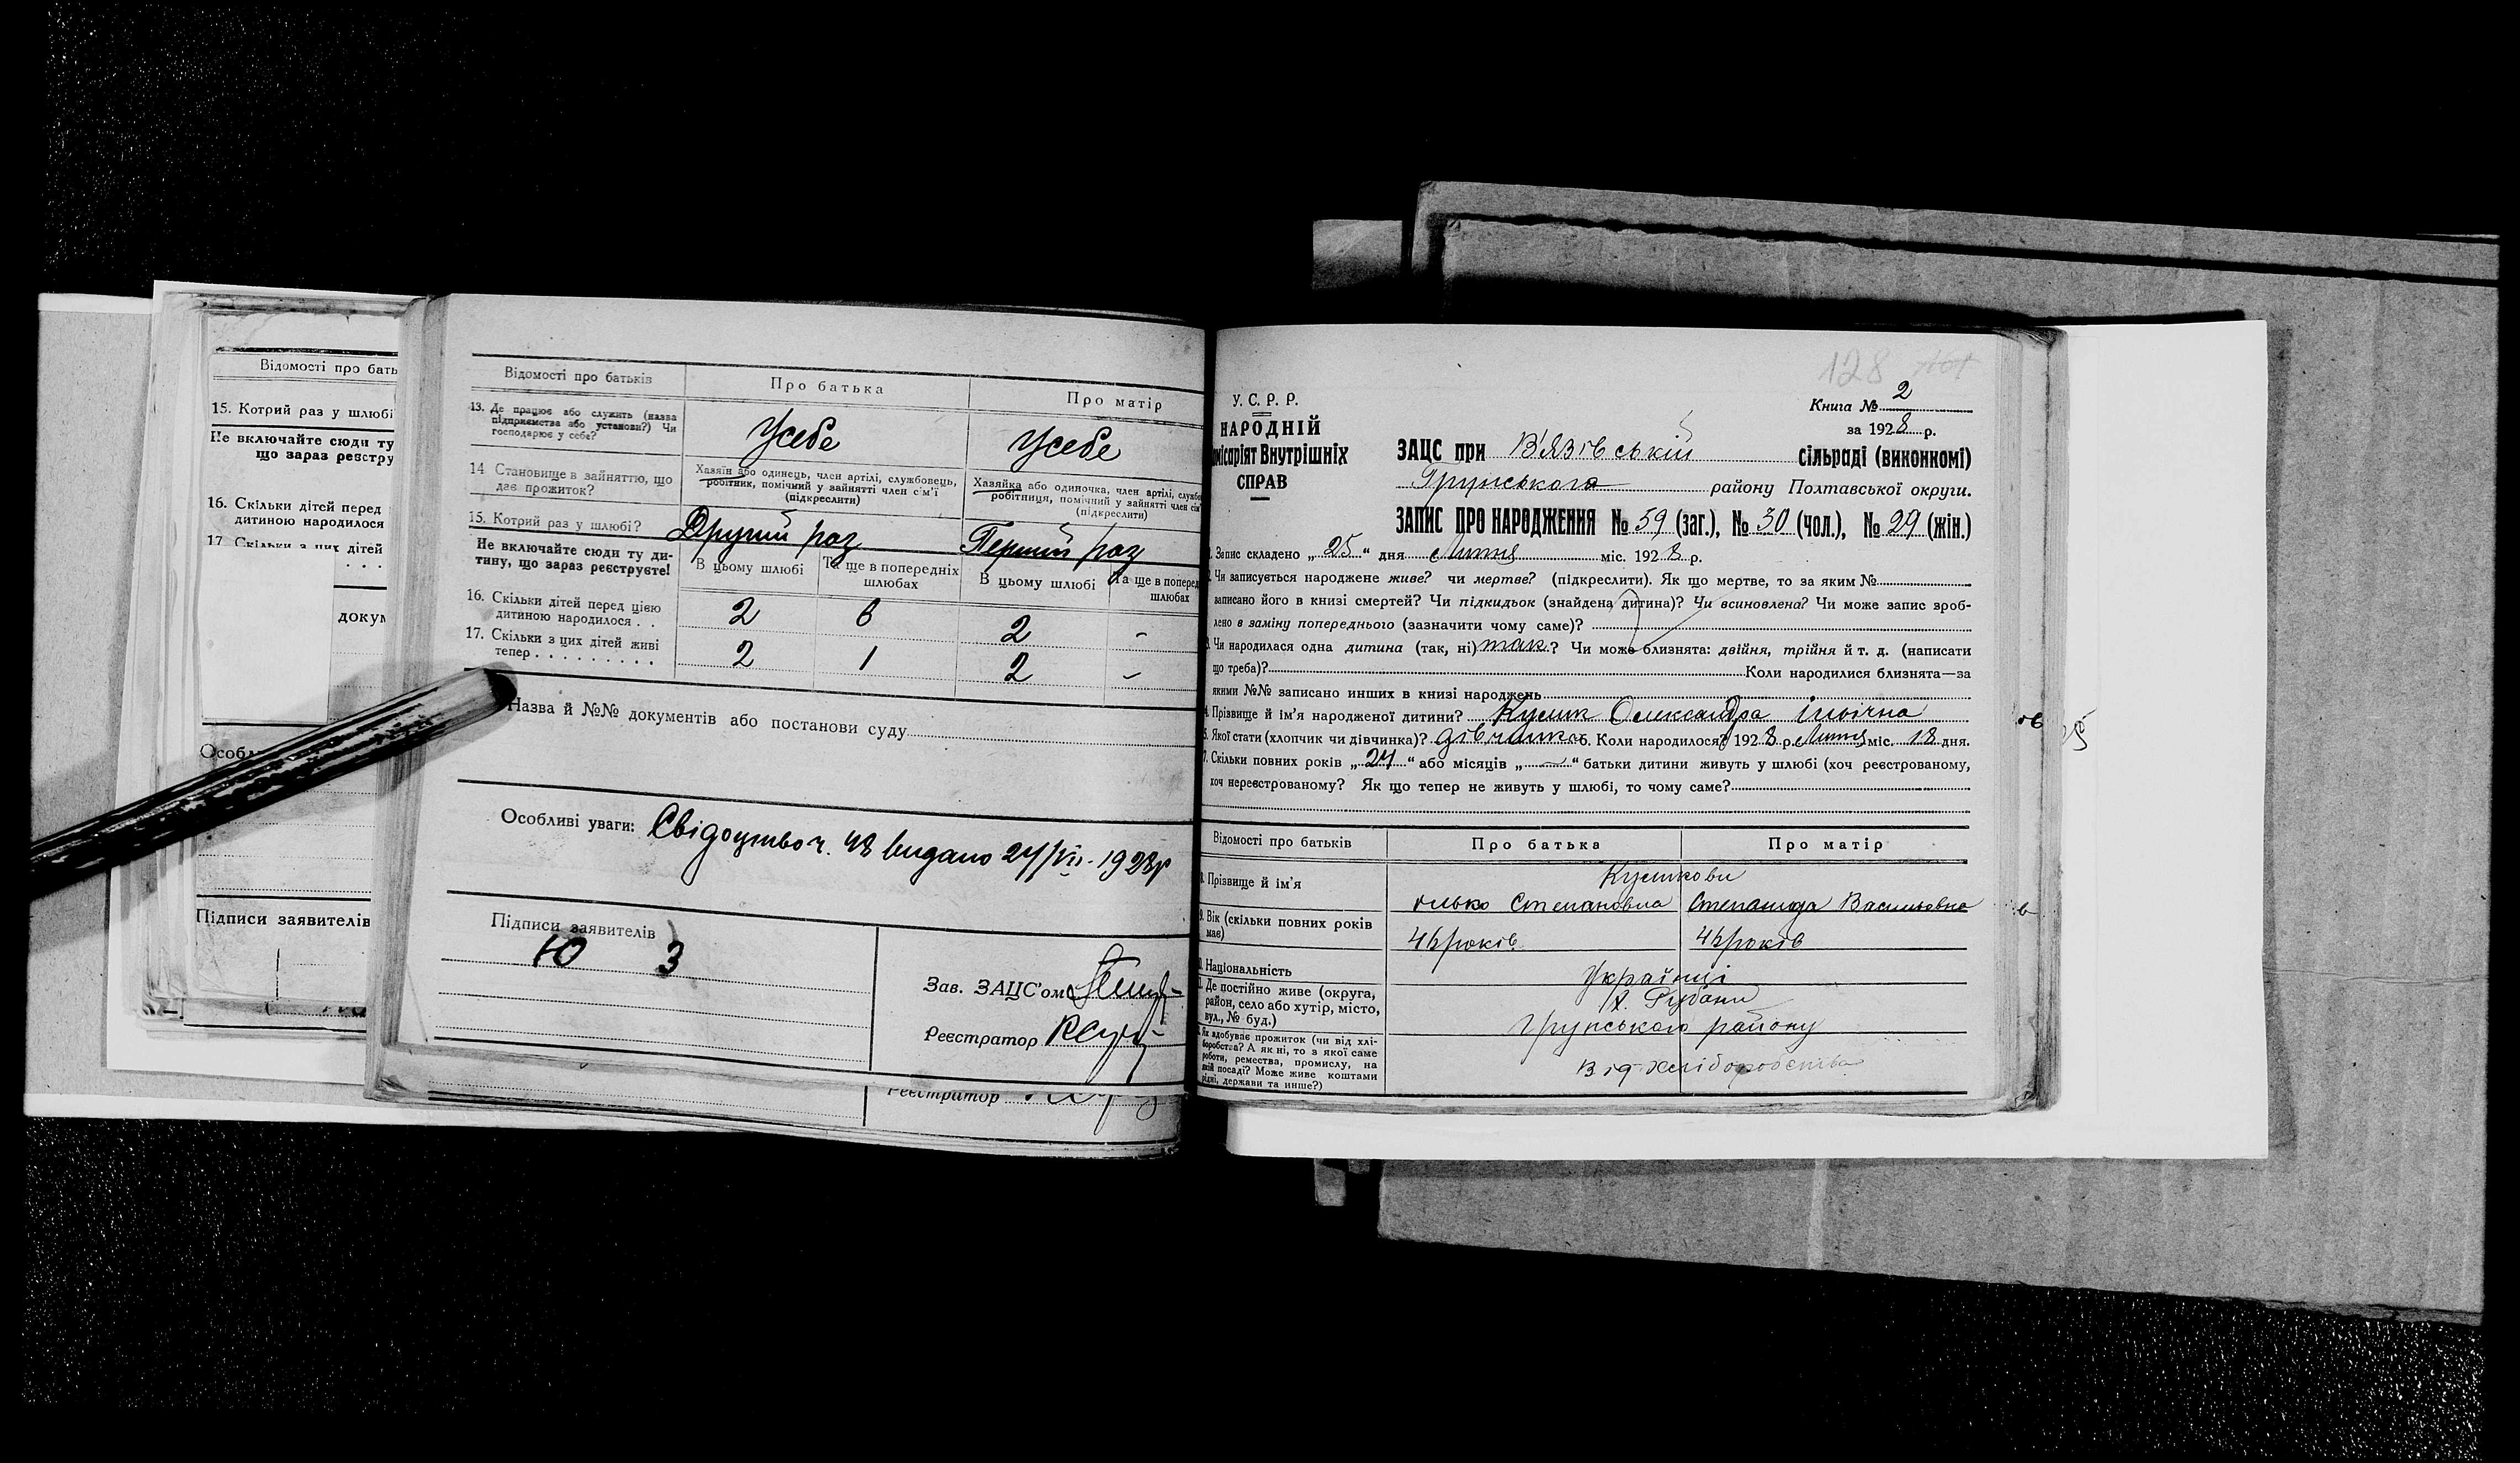 Відомості про бать
15. Котрий раз у шлюбі
Не включайте сюди ту
що зараз реєстру
16. Скільки дітей перед
дитиною народилося
17. Скільки з цих дітей
. . .
докум
Особл
Підписи заявителів
Відомості про батьків
Про батька
Про матір
13. Де працює або служить (назва
підприємства або установи?) Чи
господарює у себе?
Усебе
Усебе
14 Становище в зайняттю, що
дає прожиток?
Хазяїн або одинець, член артілі, службовець,
робітник, помічний у зайнятті член сім'ї
(підкреслити)
Хазяйка або одиночка, член артілі, службо
робітниця, помічний у зайнятті член сім
(підкреслити)
15. Котрий раз у шлюбі?
Другий раз
Перший раз
Не включайте сюди ту ди-
тину, що зараз реєструєте!
В цьому шлюбі
Та ще в попередніх
шлюбах
В цьому шлюбі
Та ще в поперед
шлюбах
16. Скільки дітей перед цією
дитиною народилося . .
2 6 2 -
17. Скільки з цих дітей живі
тепер . . . . . . . . . .
2 1 2 -
Назва й №№ документів або постанови суду
Особливі уваги: Свідоцтво ч. 48 видано 24/VII - 1928р
Підписи заявителів
Ю З
Зав. ЗАЦС'ом
Реєстратор
Реєстратор
128
У. С. Р. Р.
НАРОДНІЙ
місаріят Внутрішніх
СПРАВ
Книга № 2
за 1928 р.
ЗАЦС при В'язівській сільраді (виконкомі)
Грунського району Полтавської округи.
ЗАПИС ПРО НАРОДЖЕННЯ № 59 (заг.), № 30 (чол.), № 29 (жін.)
1. Запис складено „ 25 “ дня Липня міс. 1928 р.
2. Чи записується народжене живе? чи мертве? (підкреслити). Як що мертве, то за яким №
записано його в книзі смертей? Чи підкидьок (знайдена дитина)? Чи всиновлена? Чи може запис зроб-
лено в заміну попереднього (зазначити чому саме)?
3. Чи народилася одна дитина (так, ні) так? Чи може близнята: двійня, трійня й т. д. (написати
що треба)? Коли народилися близнята—за
якими №№ записано инших в книзі народжень
4. Прізвище й ім'я народженої дитини? Кулик Олександра Ільічна
5. Якої стати (хлопчик чи дівчинка)? дівчинка 6. Коли народилося? 1928 р. Липня міс. 18 дня.
7. Скільки повних років „ 24 “ або місяців „ — “ батьки дитини живуть у шлюбі (хоч реєстрованому,
хоч нереєстрованому? Як що тепер не живуть у шлюбі, то чому саме?
Відомості про батьків
Про батька
Про матір
8. Прізвище й ім'я
Степановна
Васильевна
9. Вік (скільки повних років
має)
років
років
10. Національність
Українці
11. Де постійно живе (округа,
район, село або хутір, місто,
вул., № буд.)
Грунського району
12. Як здобуває прожиток (чи від хлі-
боробства? А як ні, то з якої саме
роботи, ремества, промислу, на
якій посаді? Може живе коштами
рідні, держави та инше?)
Від хліборобства